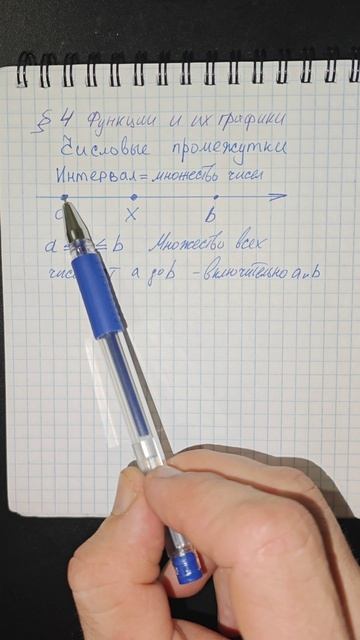 § 4 Функции и их графики
Числовые промежутки
Интервал = множество чисел
x b
a ≤ ≤ b Множество всех
a до b - включительно a и b